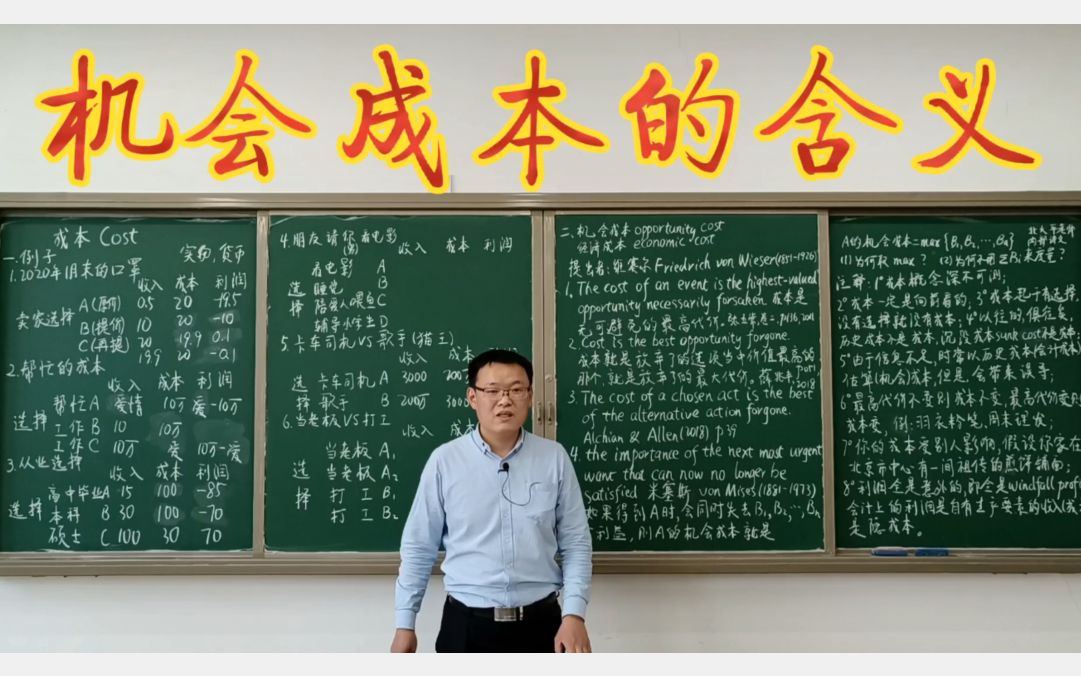 机会成本的含义
成本 Cost
一.例子 实物,货币
1.2020年1月末的口罩
收入 成本 利润
A(原价) 0.5 20 -19.5
卖家选择
B(提价) 10 20 -10
C(再提) 20 19.9 0.1
19.9 20 -0.1
2.帮忙的成本
收入 成本 利润
帮忙A 爱情 10万 爱-10万
选择
工作B 10 10万
工作C 10万 爱 10万-爱
3.从业选择
收入 成本 利润
高中毕业A 15 100 -85
选择 本科 B 30 100 -70
硕士 C 100 30 70
4.朋友请你看电影
收入 成本 利润
看电影 A
选 睡觉 B
择 陪爱人喂鱼C
辅导小学生D
5.卡车司机VS歌手(猫王)
收入 成本
选 卡车司机 A 3000
择 歌手 B 200万
6.当老板VS打工
收入 成本
当老板 A₁
选 当老板 A₂
择 打工 B₁
打工 B₂
二、机会成本 opportunity cost
经济成本 economic cost
提出者:维塞尔 Friedrich von Wieser(1851-1926)
1. The cost of an event is the highest-valued
opportunity necessarily forsaken. 成本是
无可避免的最高代价。
2. Cost is the best opportunity forgone.
成本就是放弃了的选项当中价值最高的
那个,就是放弃了的最大代价。 2018
3. The cost of a chosen act is the best
of the alternative action forgone.
Alchian & Allen(2018) p39
4. the importance of the next most urgent
want that can now no longer be
satisfied 米塞斯 von Mises(1881-1973)
如果得到A时,会同时失去B₁,B₂,…Bₙ
利益,则A的机会成本就是
A的机会成本=max{B₁,B₂,…,Bₙ}
(1)为何取max? (2)为何不用ΣBᵢ来度量?
注释:1°成本概念深不可测;
2°成本一定是向前看的,3°成本起于有选择,
没有选择就没有成本;4°以往的,俱往矣,
历史成本不是成本,沉没成本sunk cost不是成本;
5°由于信息不足,时常以历史成本(会计成本)
估算(机会)成本但是会带来误导;
6°最高代价不变则成本不变,最高代价变则
成本变,例:羽衣粉笔,周末理发;
7°你的成本受别人影响,假设你家在
北京市中心有一间祖传的煎饼铺面;
8°利润全是意外的,即全是windfall profit
会计上的利润是自有生产要素的收入或
是隐成本。